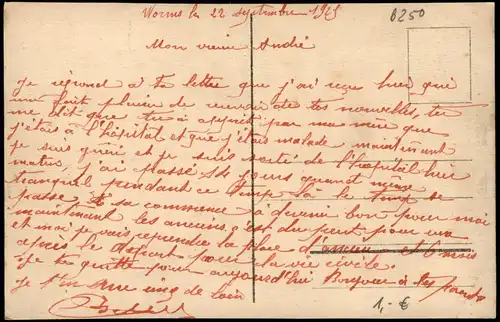 Worms le 22 septembre 1925
0250
Mon vieux André
Je répond à ta lettre que j'ai reçu hier, qui
me fait plaisir de recevoir de tes nouvelles, tu
me dit que tu a apprit par ma mère que
j'étais à l'hôpital et que j'étais malade maintenant
je suis guéri et je suis sorti de l'hôpital hier
matin, j'ai passé 14 jours quand meme
tranquil pendant ce temp là le temp se
passe. Et sa commence à devenir bon pour moi
maintenant les anciens c'est du peut pour eux
et moi je vais reprendre la place d'ancien et 6 mois
après le départ pour la vie civile.
Je te quitte pour aujourd'hui Bonjour à tes parents
Je t'en serre une de loin
1,- €